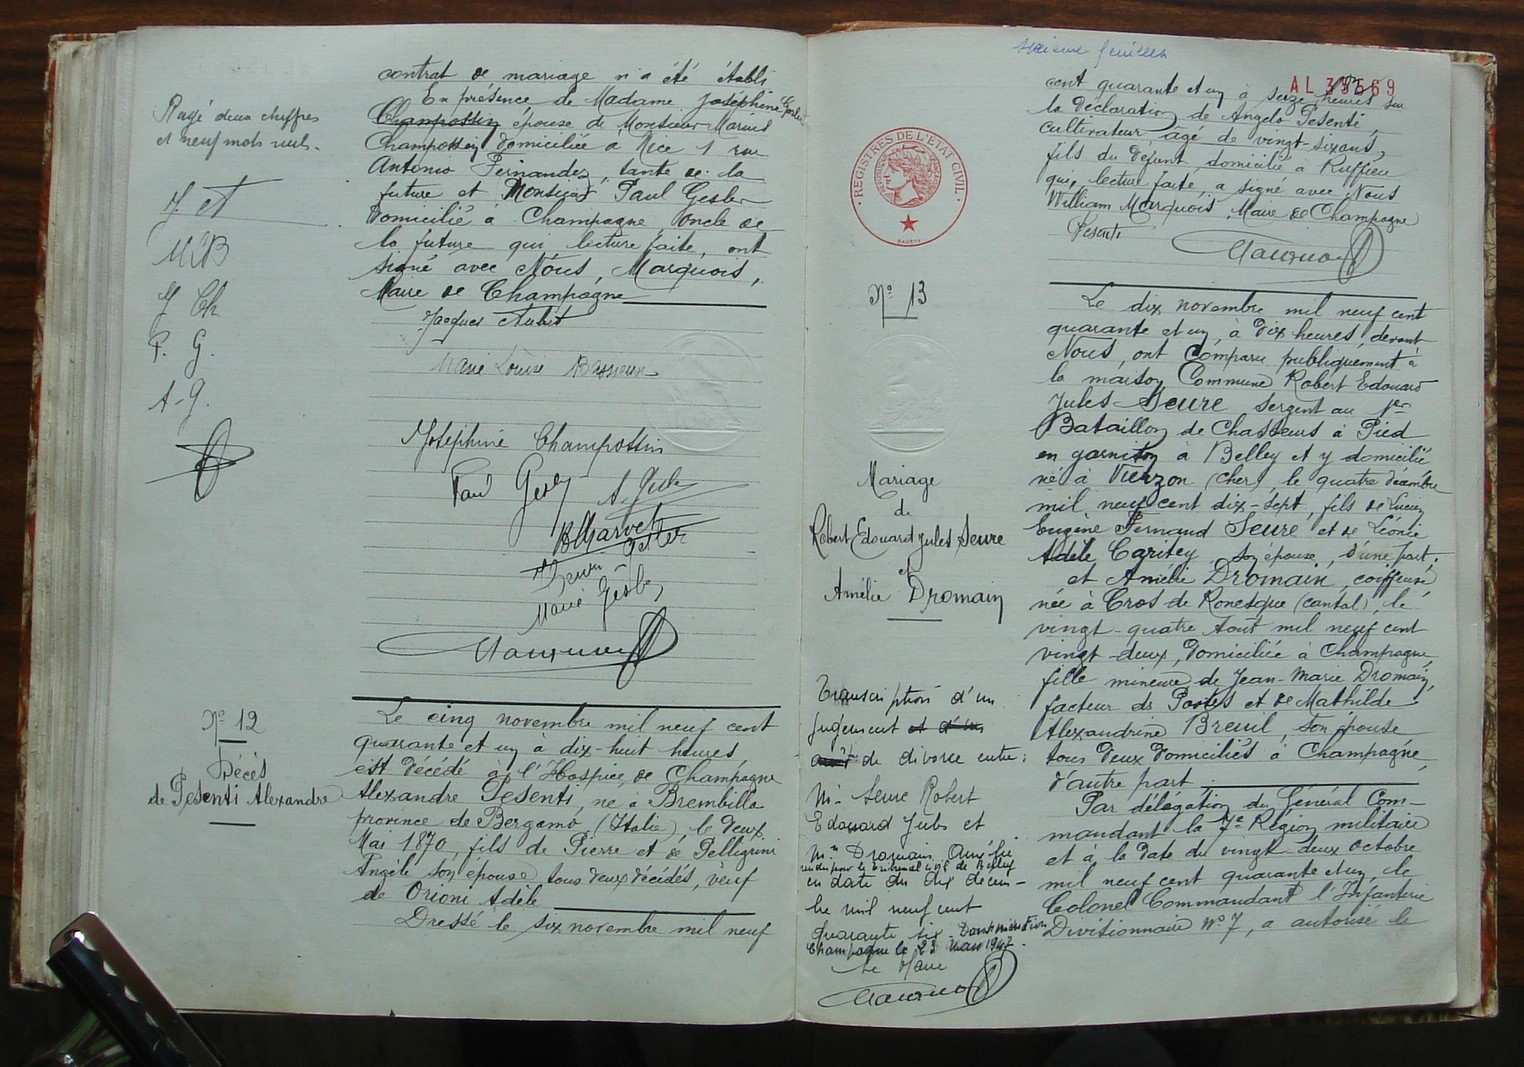 Rayé deux chiffres
et neuf mots nuls.
J A
MLB
J Ch
P. G.
A-G.
contrat de mariage n'a été établi
En présence de Madame Joséphine Gesler
Champossin épouse de Monsieur Marius
Champossin domiciliée à Nice 1 rue
Antonio Fernandez, tante de la
future et Monsieur Paul Gesler
domicilié à Champagne oncle de
la future qui, lecture faite, ont
signé avec Nous, Marquois,
Maire de Champagne
Jacques Aubit
Marie Louise
Joséphine Champossin
Paul Gesler
Marie Gesler
Nº 12
Décès
de Pesenti Alexandre
Le cinq novembre mil neuf cent
quarante et un à dix-huit heures
est décédé à l'Hospice de Champagne
Alexandre Pesenti, né à Brembilla
province de Bergamo (Italie), le deux
Mai 1870, fils de Pierre et de Pelligrini
Angèle son épouse tous deux décédés, veuf
de Orioni Adèle
Dressé le six novembre mil neuf
AL 33569
cent quarante et un à seize heures sur
la déclaration de Angelo Pesenti,
cultivateur agé de vingt-six ans,
fils du défunt, domicilié à Ruffieu
qui, lecture faite, a signé avec Nous
William Marquois, Maire de Champagne
Pesenti
REGISTRES DE L'ETAT CIVIL
Nº 13
Mariage
de
Robert Edouard Jules Seure
et
Amélie Dromain
Transcription d'un
Jugement et d'un
arrêt de divorce entre :
Mr Seure Robert
Edouard Jules et
Mme Dromain Amélie
rendu par le tribunal civil de Belley
en date du dix décem-
bre mil neuf cent
quarante six. Dont mention
Champagne le 23 Mars 1947.
Le Maire
Le dix novembre mil neuf cent
quarante et un, à dix heures, devant
Nous, ont comparu publiquement à
la maison Commune Robert Edouard
Jules Seure Sergent au 1er
Bataillon de Chasseurs à Pied
en garnison à Belley et y domicilié
né à Vierzon (cher) le quatre décembre
mil neuf cent dix-sept, fils de Lucien
Eugène Fernand Seure et de Léonie
Adèle Caritey son épouse, d'une part,
et Amélie Dromain, coiffeuse
née à Cros de Ronesque (cantal), le
vingt-quatre Aout mil neuf cent
vingt-deux, domiciliée à Champagne,
fille mineure de Jean-Marie Dromain,
facteur des Postes et de Mathilde
Alexandrine Breuil, son épouse
tous deux domiciliés à Champagne,
d'autre part
Par délégation du Général Com-
mandant la 7e Région militaire
et à la date du vingt-deux octobre
mil neuf cent quarante et un, le
Colonel Commandant l'Infanterie
Divisionnaire Nº 7, a autorisé le